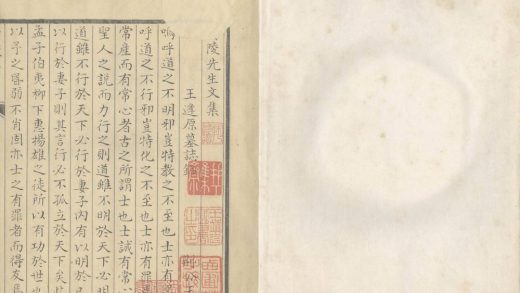 陵先生文集
王逢原墓誌銘 荆公王
嗚呼道之不明邪豈特教之不至也士亦有罪
呼道之不行邪豈特化之不至也士亦有罪
常産而有常心者古之所謂士也士誠有常心
聖人之說而力行之則道雖不明於天下必明
道雖不行於天下必行於妻子内有以明於
以行於妻子則其言行必不孤立於天下矣
孟子伯夷柳下惠揚雄之徒所以有功於世也
以予之昏弱不肖固亦士之有罪者而得友焉